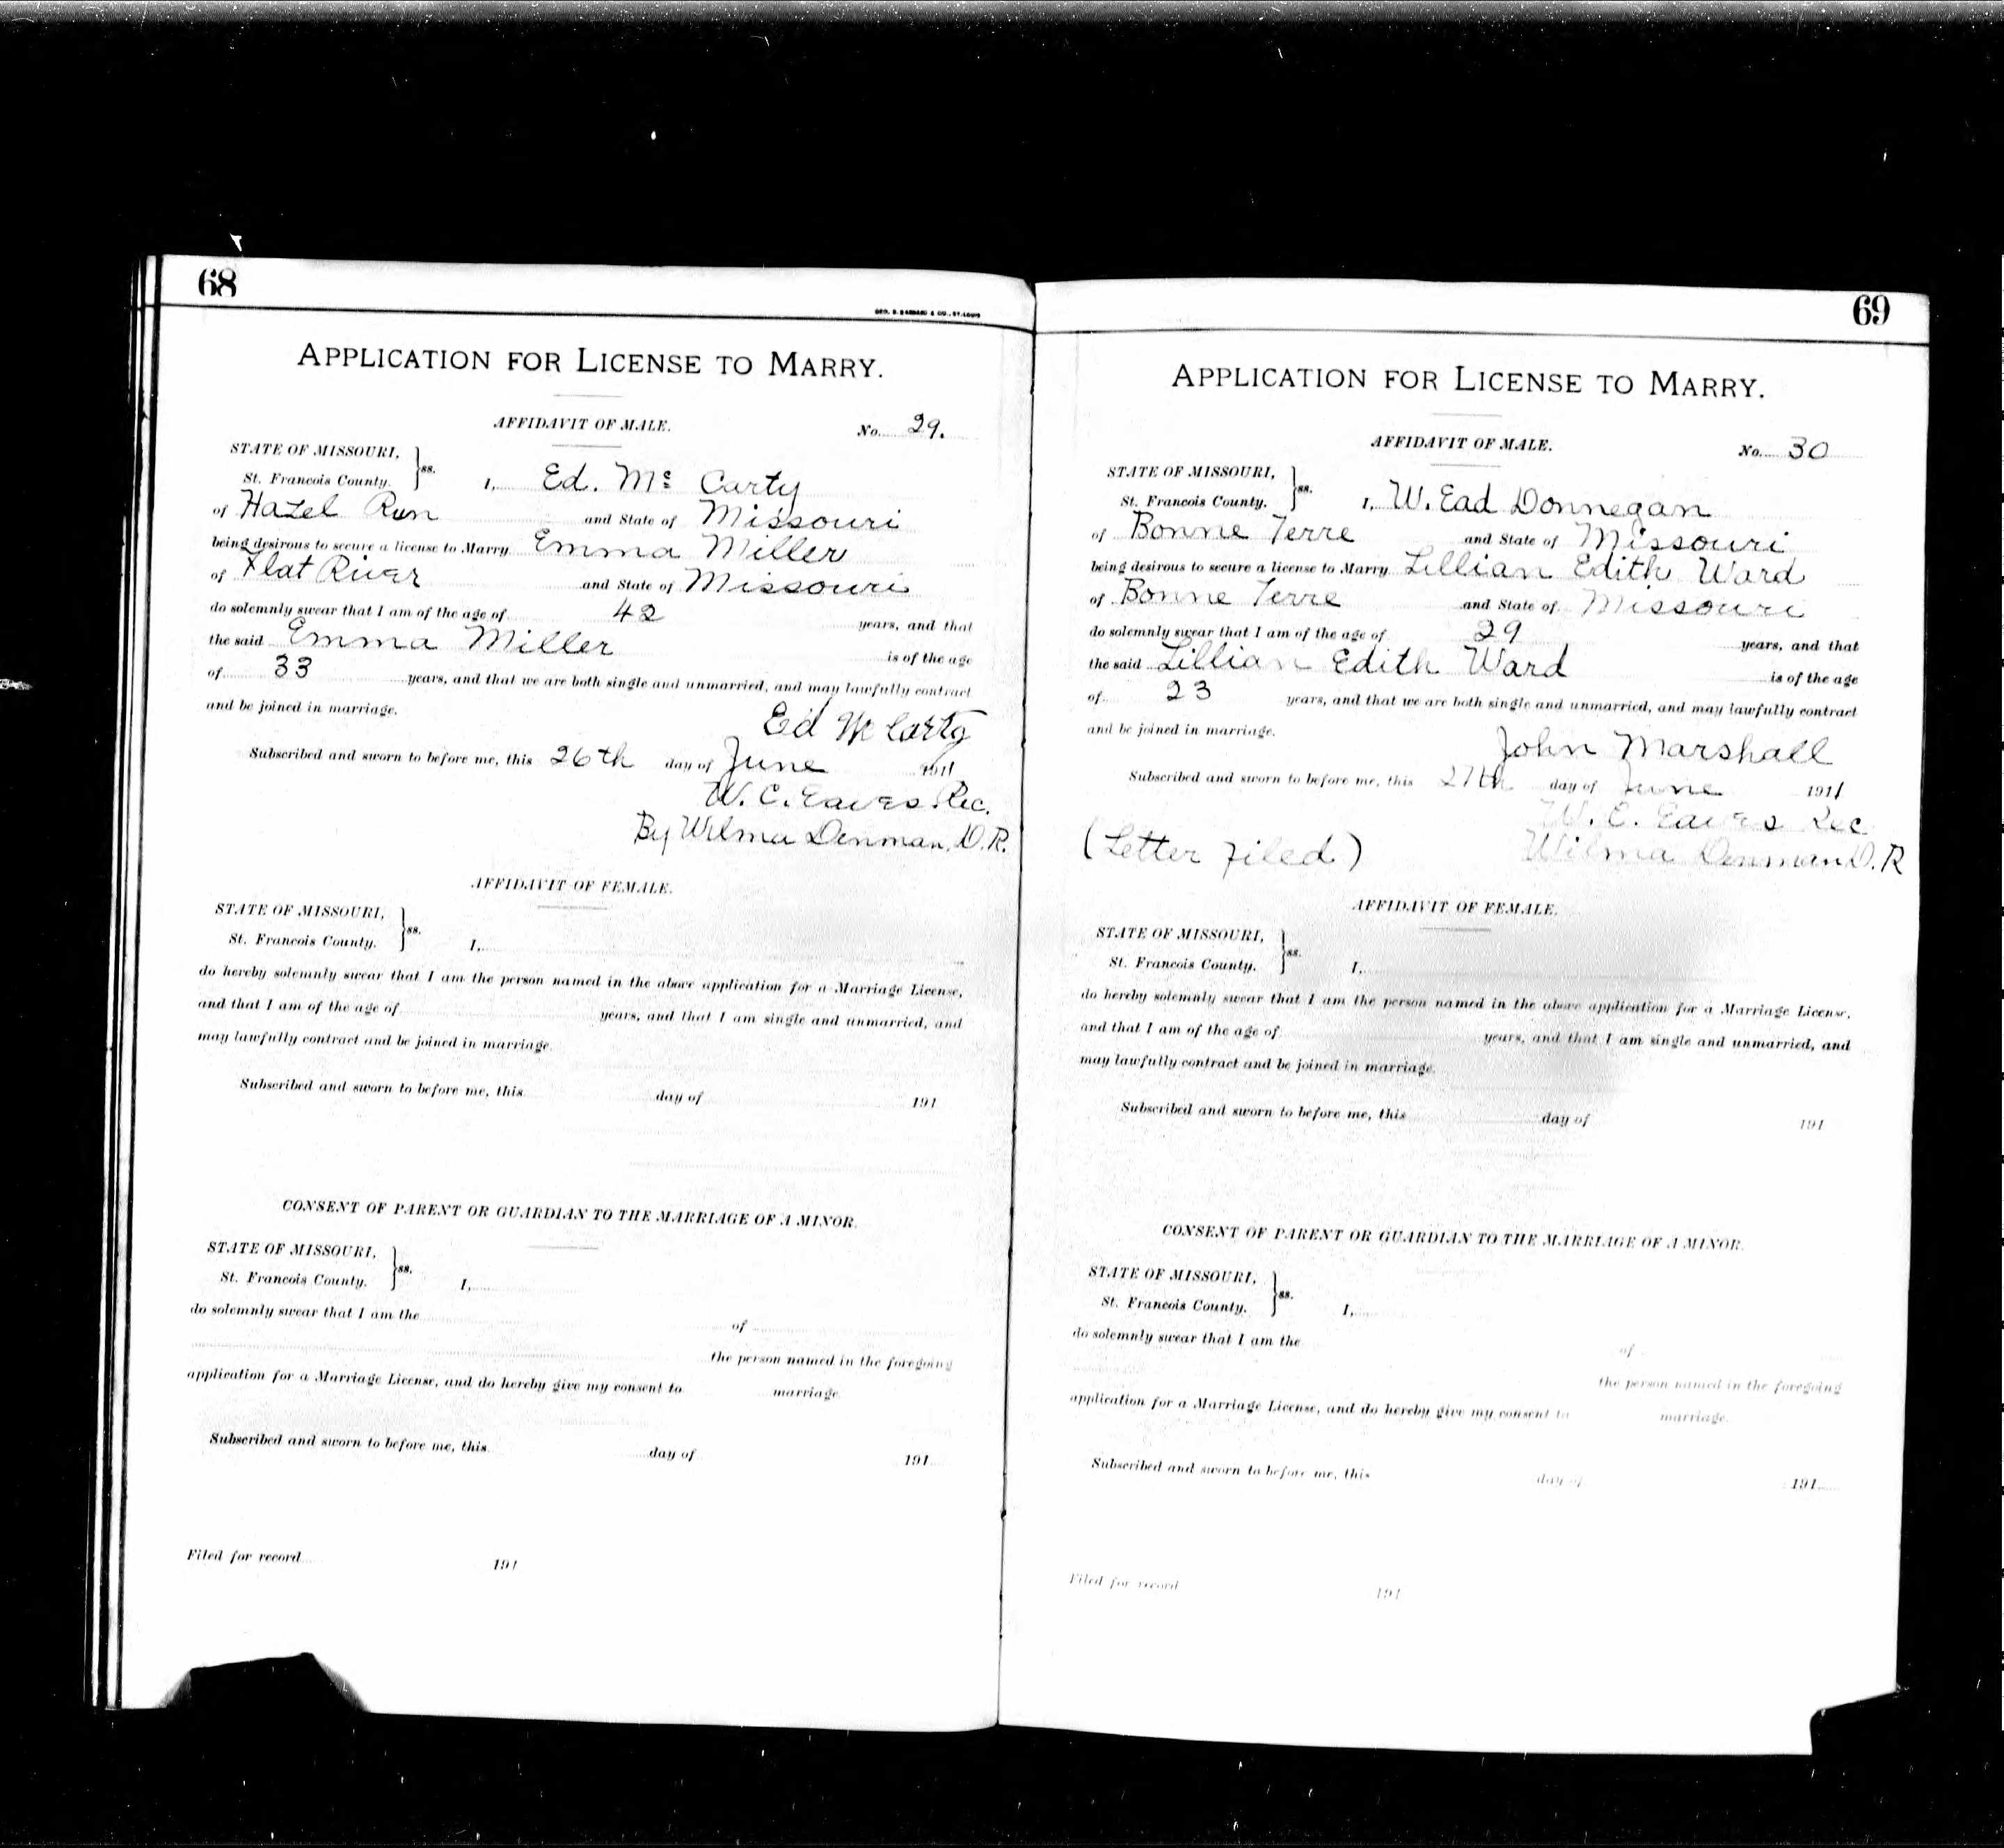 68
GEO. D. BARNARD & CO., ST. LOUIS
APPLICATION FOR LICENSE TO MARRY.
AFFIDAVIT OF MALE.
No. 29.
STATE OF MISSOURI,
St. Francois County. } ss. I, Ed. Mc Carty
of Hazel Run and State of Missouri
being desirous to secure a license to Marry Emma Miller
of Flat River and State of Missouri
do solemnly swear that I am of the age of 42 years, and that
the said Emma Miller is of the age
of 33 years, and that we are both single and unmarried, and may lawfully contract
and be joined in marriage.
Ed McCarty
Subscribed and sworn to before me, this 26th day of June 1911
W. C. Eaves Rec.
By Wilma Denman, D.R.
AFFIDAVIT OF FEMALE.
STATE OF MISSOURI,
St. Francois County. } ss. I,
do hereby solemnly swear that I am the person named in the above application for a Marriage License,
and that I am of the age of years, and that I am single and unmarried, and
may lawfully contract and be joined in marriage.
Subscribed and sworn to before me, this day of 191
CONSENT OF PARENT OR GUARDIAN TO THE MARRIAGE OF A MINOR.
STATE OF MISSOURI,
St. Francois County. } ss. I,
do solemnly swear that I am the of
the person named in the foregoing
application for a Marriage License, and do hereby give my consent to marriage
Subscribed and sworn to before me, this day of 191
Filed for record 191
69
APPLICATION FOR LICENSE TO MARRY.
AFFIDAVIT OF MALE.
No. 30
STATE OF MISSOURI,
St. Francois County. } ss. I, W. Ead Donnegan
of Bonne Terre and State of Missouri
being desirous to secure a license to Marry Lillian Edith Ward
of Bonne Terre and State of Missouri
do solemnly swear that I am of the age of 29 years, and that
the said Lillian Edith Ward is of the age
of 23 years, and that we are both single and unmarried, and may lawfully contract
and be joined in marriage.
John Marshall
Subscribed and sworn to before me, this 27th day of June 1911
W. C. Eaves Rec
(Letter filed) Wilma Denman D.R
AFFIDAVIT OF FEMALE.
STATE OF MISSOURI,
St. Francois County. } ss. I,
do hereby solemnly swear that I am the person named in the above application for a Marriage License,
and that I am of the age of years, and that I am single and unmarried, and
may lawfully contract and be joined in marriage.
Subscribed and sworn to before me, this day of 191
CONSENT OF PARENT OR GUARDIAN TO THE MARRIAGE OF A MINOR.
STATE OF MISSOURI,
St. Francois County. } ss. I,
do solemnly swear that I am the of
the person named in the foregoing
application for a Marriage License, and do hereby give my consent to marriage.
Subscribed and sworn to before me, this day of 191
Filed for record 191